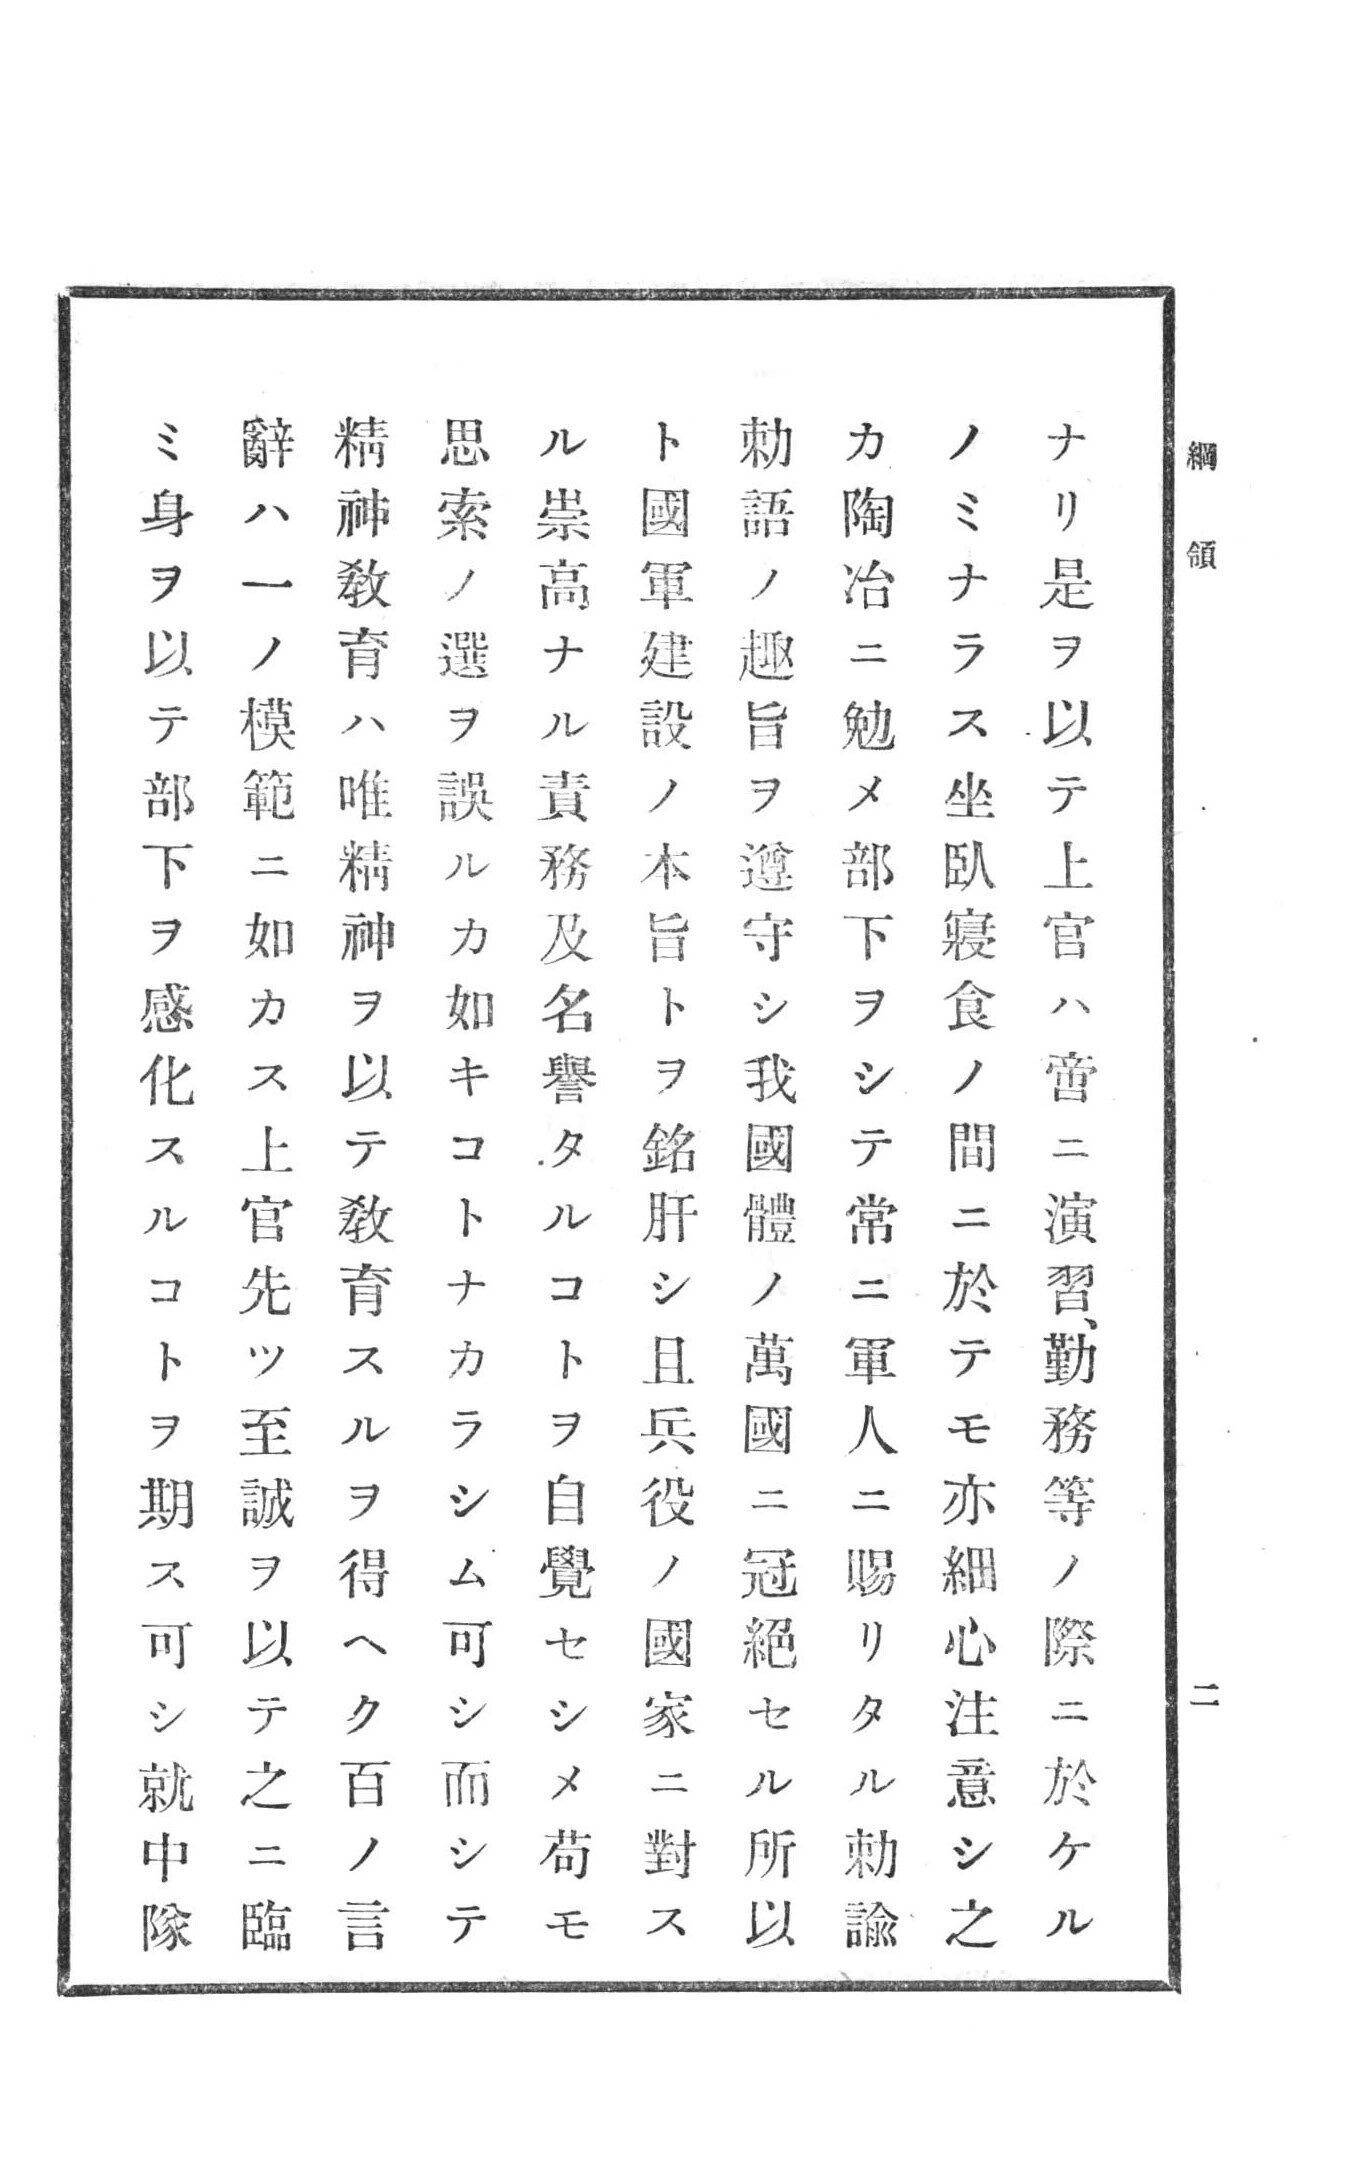 綱領
二
ナリ是ヲ以テ上官ハ啻ニ演習、勤務等ノ際ニ於ケル
ノミナラス坐臥寢食ノ間ニ於テモ亦細心注意シ之
カ陶冶ニ勉メ部下ヲシテ常ニ軍人ニ賜リタル勅諭
勅語ノ趣旨ヲ遵守シ我國體ノ萬國ニ冠絕セル所以
ト國軍建設ノ本旨トヲ銘肝シ且兵役ノ國家ニ對ス
ル崇高ナル責務及名譽タルコトヲ自覺セシメ苟モ
思索ノ選ヲ誤ルカ如キコトナカラシム可シ而シテ
精神教育ハ唯精神ヲ以テ教育スルヲ得ヘク百ノ言
辭ハ一ノ模範ニ如カス上官先ツ至誠ヲ以テ之ニ臨
ミ身ヲ以テ部下ヲ感化スルコトヲ期ス可シ就中隊